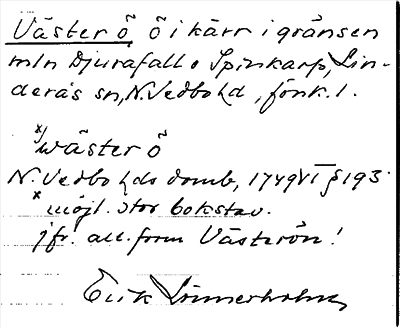 Väster ö ö i kärr i gränsen
mln Djurafall o Spinkarp, Lin-
derås sn, N. Vedbo hd, fönk. 1.
x) wäster ö
N. Vedbo hds domb, 1749 VI § 193
x möjl. stor bokstav.
jfr. all. form Västerön!
Erik Linnerholm